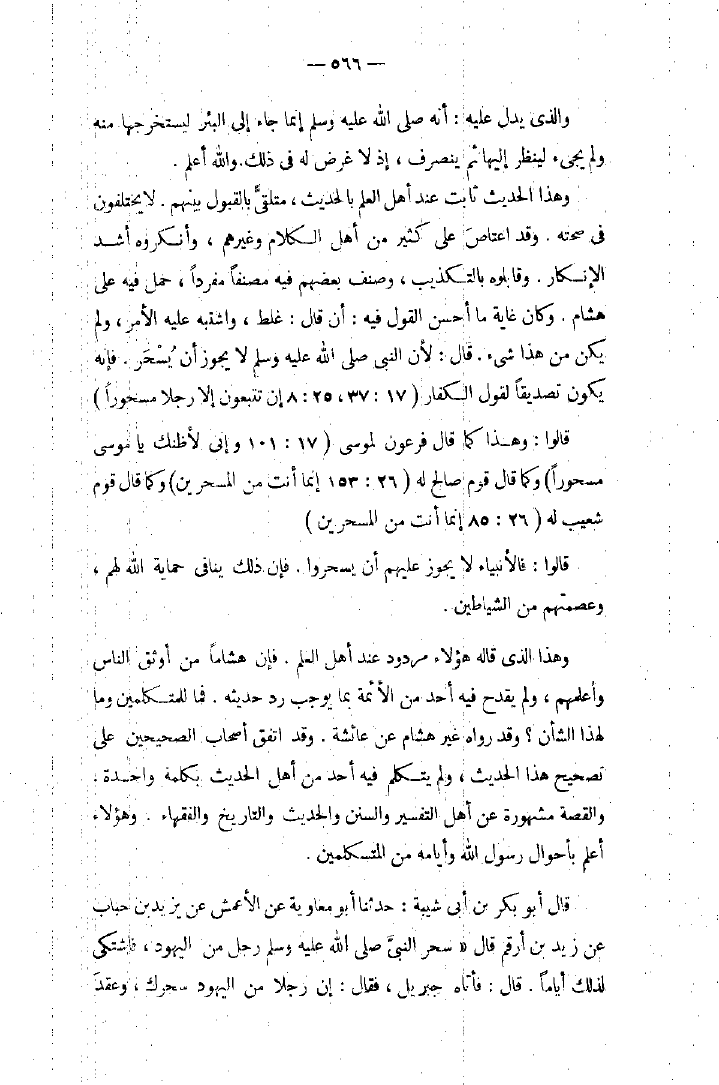 — ٥٦٦ —
والذى يدل عليه : أنه صلى الله عليه وسلم إنما جاء إلى البئر ليستخرجها منه
ولم يجىء لينظر إليها ثم ينصرف ، إذ لا غرض له فى ذلك. والله أعلم .
وهذا الحديث ثابت عند أهل العلم بالحديث ، متلقىًّ بالقبول بينهم . لا يختلفون
فى صحته . وقد اعتاصَ على كثير من أهل الكلام وغيرهم ، وأنكروه أشد
الإنكار . وقابلوه بالتكذيب ، وصنف بعضهم فيه مصنفاً مفرداً ، حمل فيه على
هشام . وكان غاية ما أحسن القول فيه : أن قال : غلط ، واشتبه عليه الأمر ، ولم
يكن من هذا شىء . قال : لأن النبى صلى الله عليه وسلم لا يجوز أن يُسْحَر . فإنه
يكون تصديقاً لقول الكفار ( ١٧ : ٣٧ ، ٢٥ : ٨ إن تتبعون إلا رجلا مسحوراً )
قالوا : وهذا كما قال فرعون لموسى ( ١٧ : ١٠١ وإنى لأظنك يا موسى
مسحوراً ) وكما قال قوم صالح له ( ٢٦ : ١٥٣ إنما أنت من المسحرين ) وكما قال قوم
شعيب له ( ٢٦ : ٨٥ إنما أنت من المسحرين )
قالوا : فالأنبياء لا يجوز عليهم أن يسحروا . فإن ذلك ينافى حماية الله لهم ،
وعصمتهم من الشياطين .
وهذا الذى قاله هؤلاء مردود عند أهل العلم . فإن هشاماً من أوثق الناس
وأعلمهم ، ولم يقدح فيه أحد من الأئمة بما يوجب رد حديثه . فما للمتكلمين وما
لهذا الشأن ؟ وقد رواه غير هشام عن عائشة . وقد اتفق أصحاب الصحيحين على
تصحيح هذا الحديث ، ولم يتكلم فيه أحد من أهل الحديث بكلمة واحدة .
والقصة مشهورة عن أهل التفسير والسنن والحديث والتاريخ والفقهاء . وهؤلاء
أعلم بأحوال رسول الله وأيامه من المتكلمين .
قال أبو بكر بن أبى شيبة : حدثنا أبو معاوية عن الأعمش عن يزيد بن حباب
عن زيد بن أرقم قال « سحر النبىَّ صلى الله عليه وسلم رجل من اليهود ، فاشتكى
لذلك أياماً . قال : فأتاه جبريل ، فقال : إن رجلا من اليهود سحرك ، وعقدَ